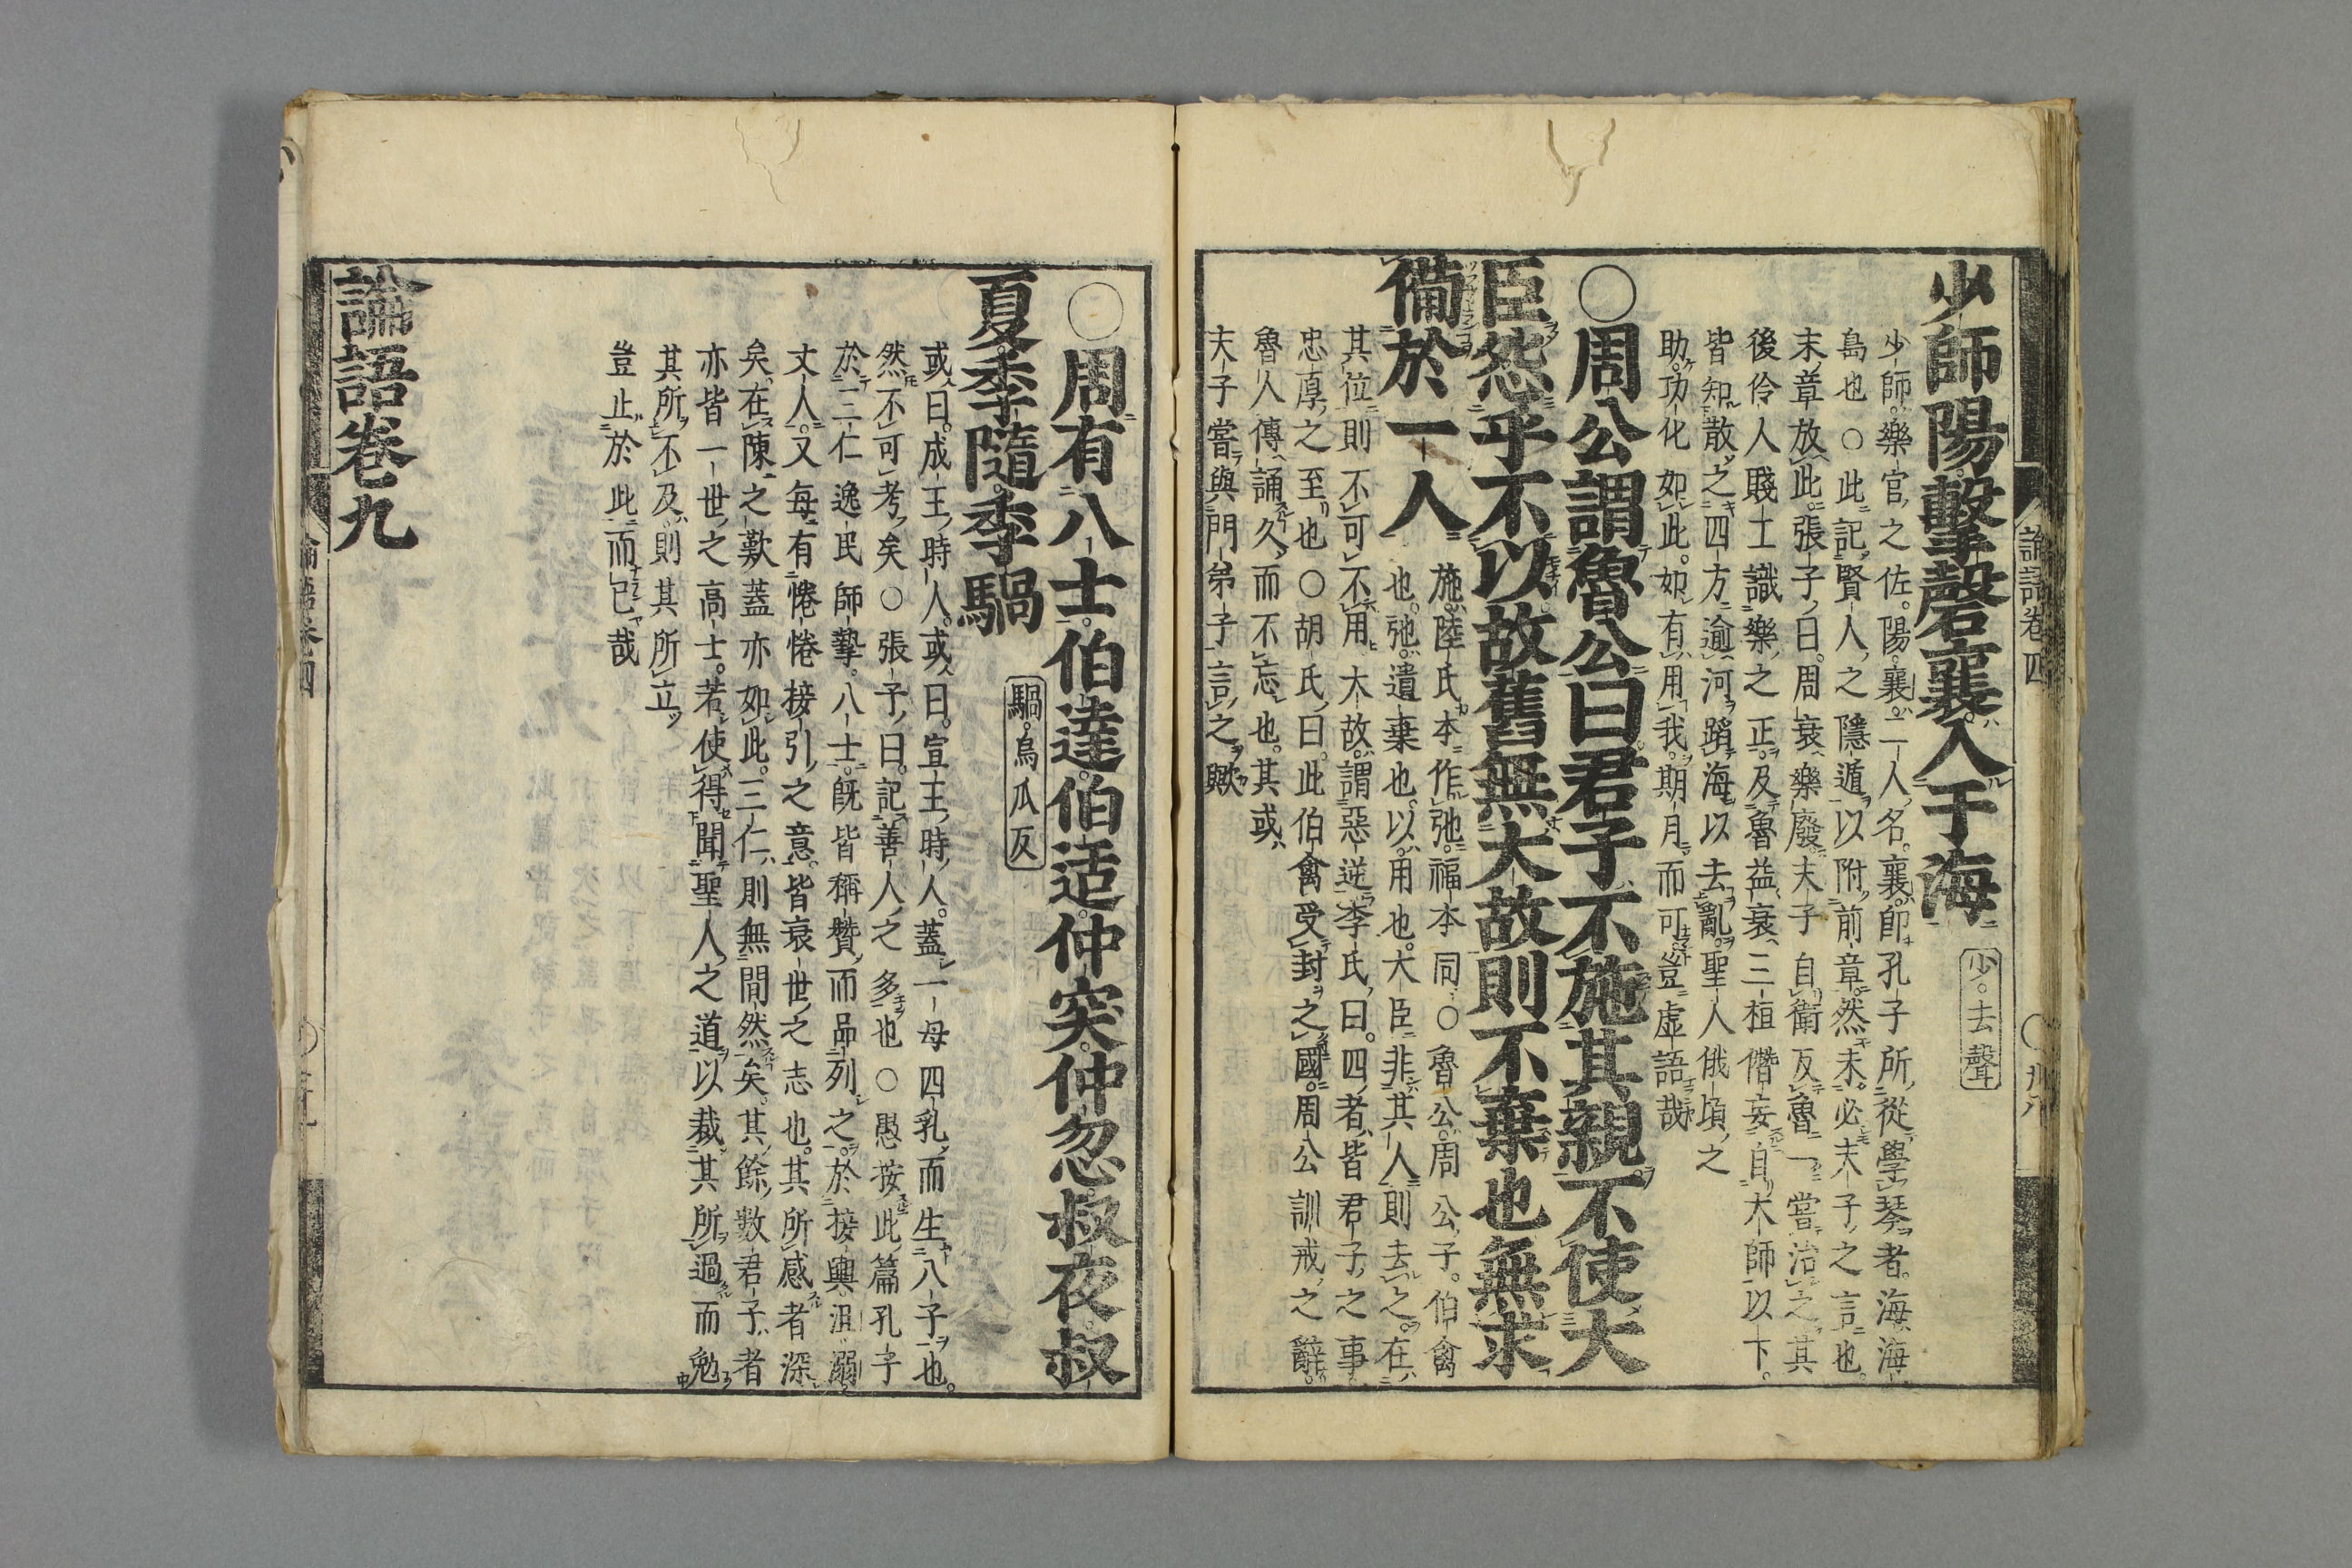 論語卷四
〇卅八
少師陽擊磬襄入于海 少去聲
少師樂官之佐。陽。襄。二人名。襄卽孔子所從學琴者。海海
島也〇此記賢人之隱遁以附前章。然未必夫子之言也。
末章放此。張子曰。周衰樂廢。夫子自衛反魯一嘗治之。其
後伶人賤工識樂之正。及魯益衰三桓僭妄自大師以下。
皆知散之四方逾河蹈海以去亂。聖人俄頃之
助。功化如此。如有用我。期月而可。豈虛語哉
〇周公謂魯公曰君子不施其親不使大
臣怨乎不以故舊無大故則不棄也無求
備於一人
施。陸氏本作弛。福本同〇魯公。周公子。伯禽
也。弛。遺棄也。以。用也。大臣非其人則去之。在
其位則不可不用。大故。謂惡逆李氏曰。四者皆君子之事
忠厚之至也〇胡氏曰。此伯禽受封之國。周公訓戒之辭。
魯人傳誦久而不忘也。其或
夫子嘗與門弟子言之歟
〇周有八士。伯達。伯适。仲突。仲忽。叔夜。叔
夏。季隨。季騧 騧。烏瓜反
或曰。成王時人。或曰。宣王時人。蓋一母四乳而生八子也。
然不可考矣〇張子曰。記善人之多也〇愚按此篇孔子
於三仁逸民師摯。八士。旣皆稱贊而品列之。於接輿沮溺
丈人。又每有惓惓接引之意。皆衰世之志也。其所感者深
矣。在陳之歎蓋亦如此。三仁則無間然矣。其餘數君子者
亦皆一世之高士。若使得聞聖人之道以裁其所過而勉
其所不及則其所立
豈止於此而已哉
論語卷九
論語卷四